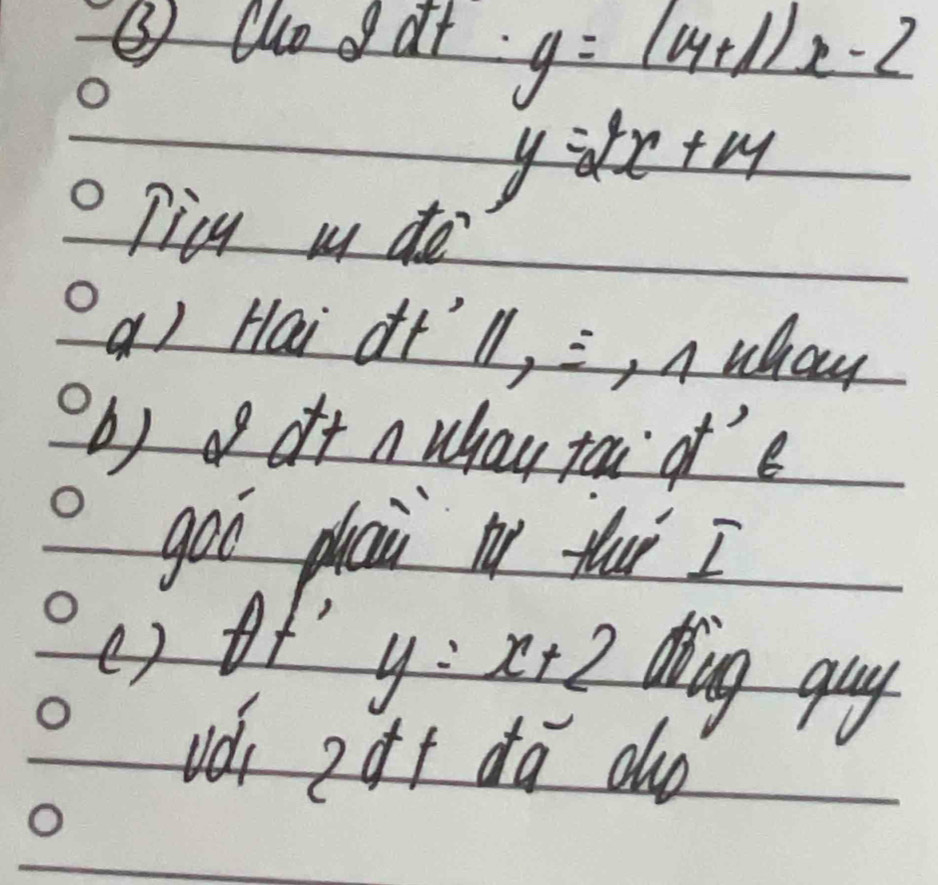 ③ Cho 2 đt : y = (m+1)x - 2
y = 2x + m
Tìm m để
a) Hai đt' //, ≡, ∩ nhau
b) 2 đt ∩ nhau tại đ' ∈
góc phần tư thứ I
c) Đt' y = x + 2 đồng quy
với 2 đt đã cho